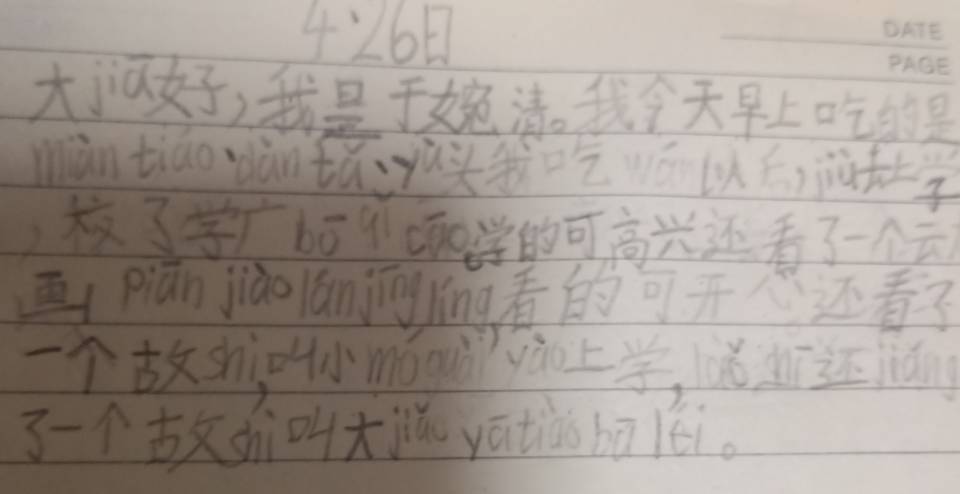 4.26日
DATE
PAGE
大jiā好，我是于婉清。我今天早上吃的是
miàn tiáo、dàn tǎ、yù头我吃wán以后，jiù去上学
，校了学广bō tǐ cāo。学的可高兴还看了一个云力
画piān jiào lán jīng líng，看的可开心还看了
一个古文shi，叫小mó guài yào上学，lǎo shī还jiǎng
了一个古文shi叫大jiǎo yā tiào bā léi。